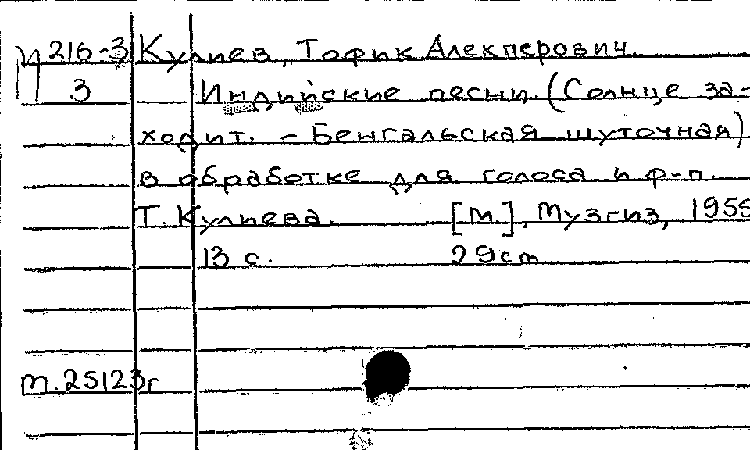 И 216-3 Кулиев, Тофик Алекперович.
3 Индийские песни. (Солнце за-
ходит. - Бенгальская шуточная)
в обработке для голоса и ф-п.
Т. Кулиева. [М.], Музгиз, 1955
13 с. 29 cm
т. 25123г